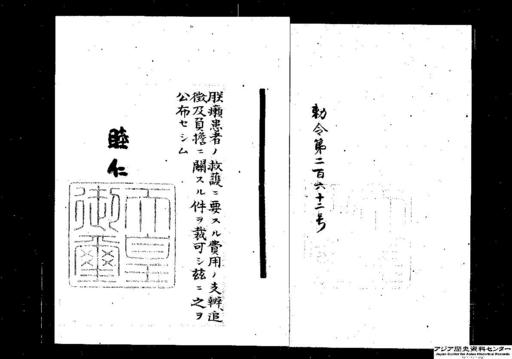 勅令第二百六十二号
朕癩患者ノ救護ニ要スル費用ノ支辨追
徴及負擔ニ關スル件ヲ裁可シ茲ニ之ヲ
公布セシム
睦仁
天皇
御璽
アジア歴史資料センター
Japan Center for Asian Historical Records